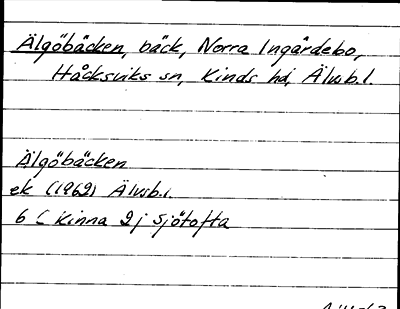 Älgöbäcken, bäck, Norra Ingårdebo,
Håcksviks sn, Kinds hd, Älvsb.l.
Älgöbäcken
ek (1962) Älvsb.l.
6 C Kinna 2j Sjötofta